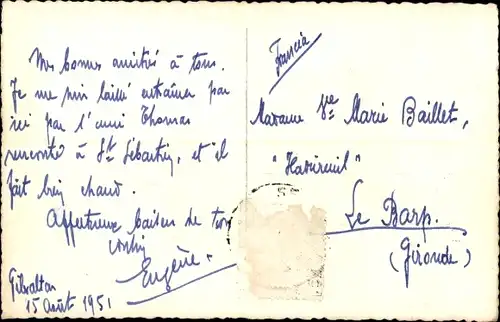 Mes bonnes amitiés à tous.
Je me suis laissé entraîner par
ici par l'ami Thomas
rencontré à St Sébastien, et il
fait bien chaud.
Affectueux baisers de ton
cousin
Eugène.
Gibraltar
15 Août 1951
Francia
Madame Vve Marie Baillet,
Le Barp.
(Gironde)